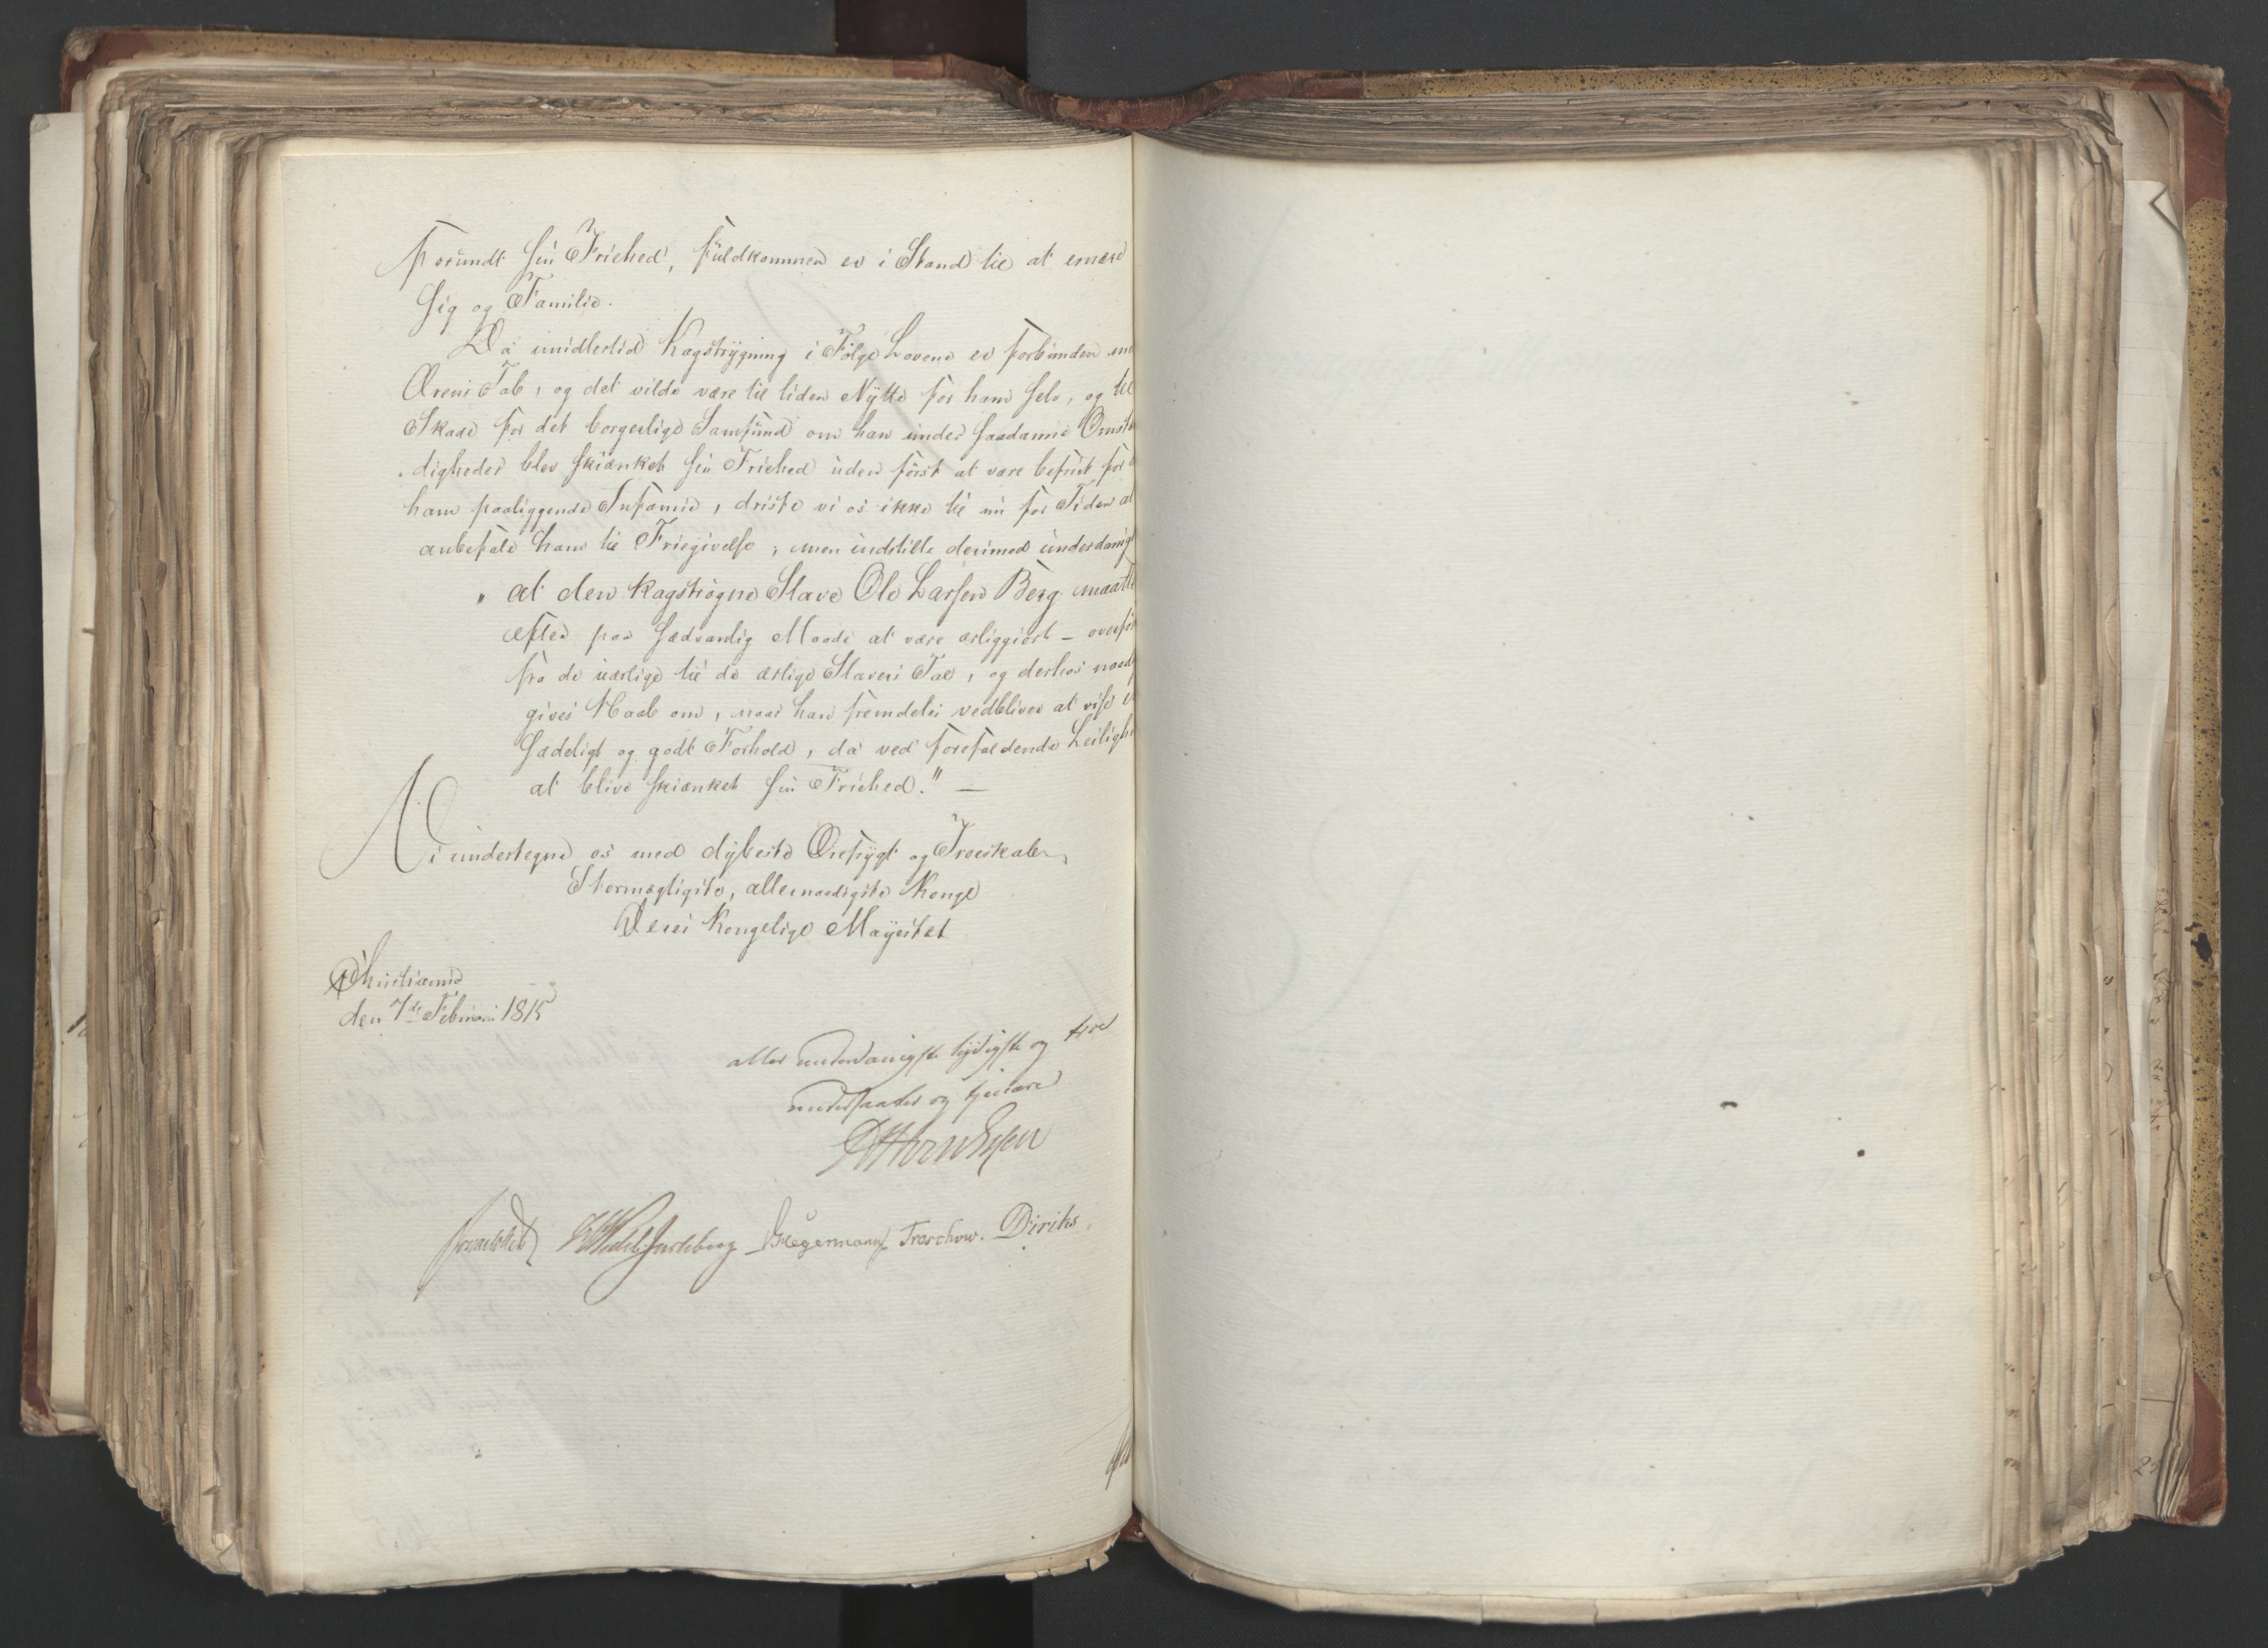 forundt sin Friehed, fuldkommen er i Stand til at ernære
sig og Familie.
Da imidlertid Kagstrygning i Følge Lovene er forbunden m
Ærens Tab, og det vilde være til liden Nytte for ham selv, og til
Skade for det borgerlige Samfund om han under saadanne Omstæ
digheder blev skiænket sin Friehed uden først at være befriet for
ham paaliggende Infamie, driste vi os ikke til nu for Tiden at
anbefale ham til Friegivelse, men indstille derimod underdanigst
" at den kagstrøgne Slave Ole Larsen Berg maatte
efter paa sædvanlig Maade at være ærliggiort - overfør
fra de uærlige til de ærlige Slavers Tal, og derhos naad
gives Haab om, naar han fremdeles vedbliver at vise e
sædeligt og godt Forhold, da ved forefaldende Leiligh
at blive skiænket sin Friehed." —
Vi undertegne os med dybeste Ærefrygt og Troeskab
Stormægtigste, allernaadigste Konge
Deres Kongelige Mayestet
Christiania
den 7de Februari 1815
aller underdanigste lydigste og troe
undersaatter og tjenere
Sommerhielm HWedelJarlsberg Hegermann Treschow. Diriks.